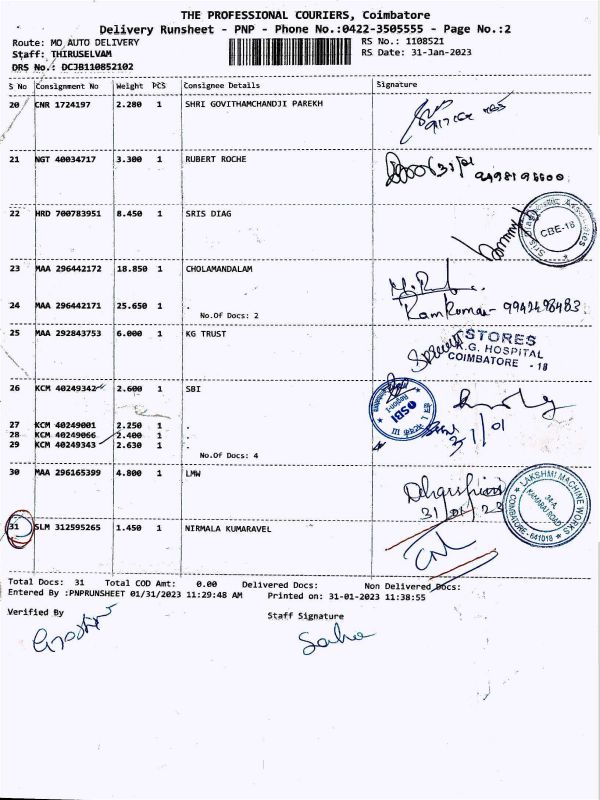 THE PROFESSIONAL COURIERS, Coimbatore
Delivery Runsheet - PNP - Phone No.:0422-3505555 - Page No.:2
Route: MD AUTO DELIVERY
RS No.: 1108521
Staff: THIRUSELVAM
RS Date: 31-Jan-2023
DRS No.: DCJB110852102
S No Consignment No Weight PCS Consignee Details Signature
20 CNR 1724197 2.280 1 SHRI GOVITHAMCHANDJI PAREKH
21 NGT 40034717 3.300 1 RUBERT ROCHE
31/01
22 HRD 700783951 8.450 1 SRIS DIAG
CBE-18
23 MAA 296442172 18.850 1 CHOLAMANDALAM
24 MAA 296442171 25.650 1 .
Ramkumar - 9942498483
No.Of Docs: 2
25 MAA 292843753 6.000 1 KG TRUST
STORES
K.G. HOSPITAL
COIMBATORE - 18
26 KCM 40249342 2.600 1 SBI
SBI
27 KCM 40249001 2.250 1 .
28 KCM 40249066 2.400 1 .
29 KCM 40249343 2.630 1 .
31/01
No.Of Docs: 4
30 MAA 296165399 4.800 1 LMW
31/01/23
LAKSHMI MACHINE WORKS
34-A,
KAMARAJ ROAD
COIMBATORE-641018
31 SLM 312595265 1.450 1 NIRMALA KUMARAVEL
Total Docs: 31 Total COD Amt: 0.00 Delivered Docs: Non Delivered Docs:
Entered By :PNPRUNSHEET 01/31/2023 11:29:48 AM Printed on: 31-01-2023 11:38:55
Verified By
Staff Signature